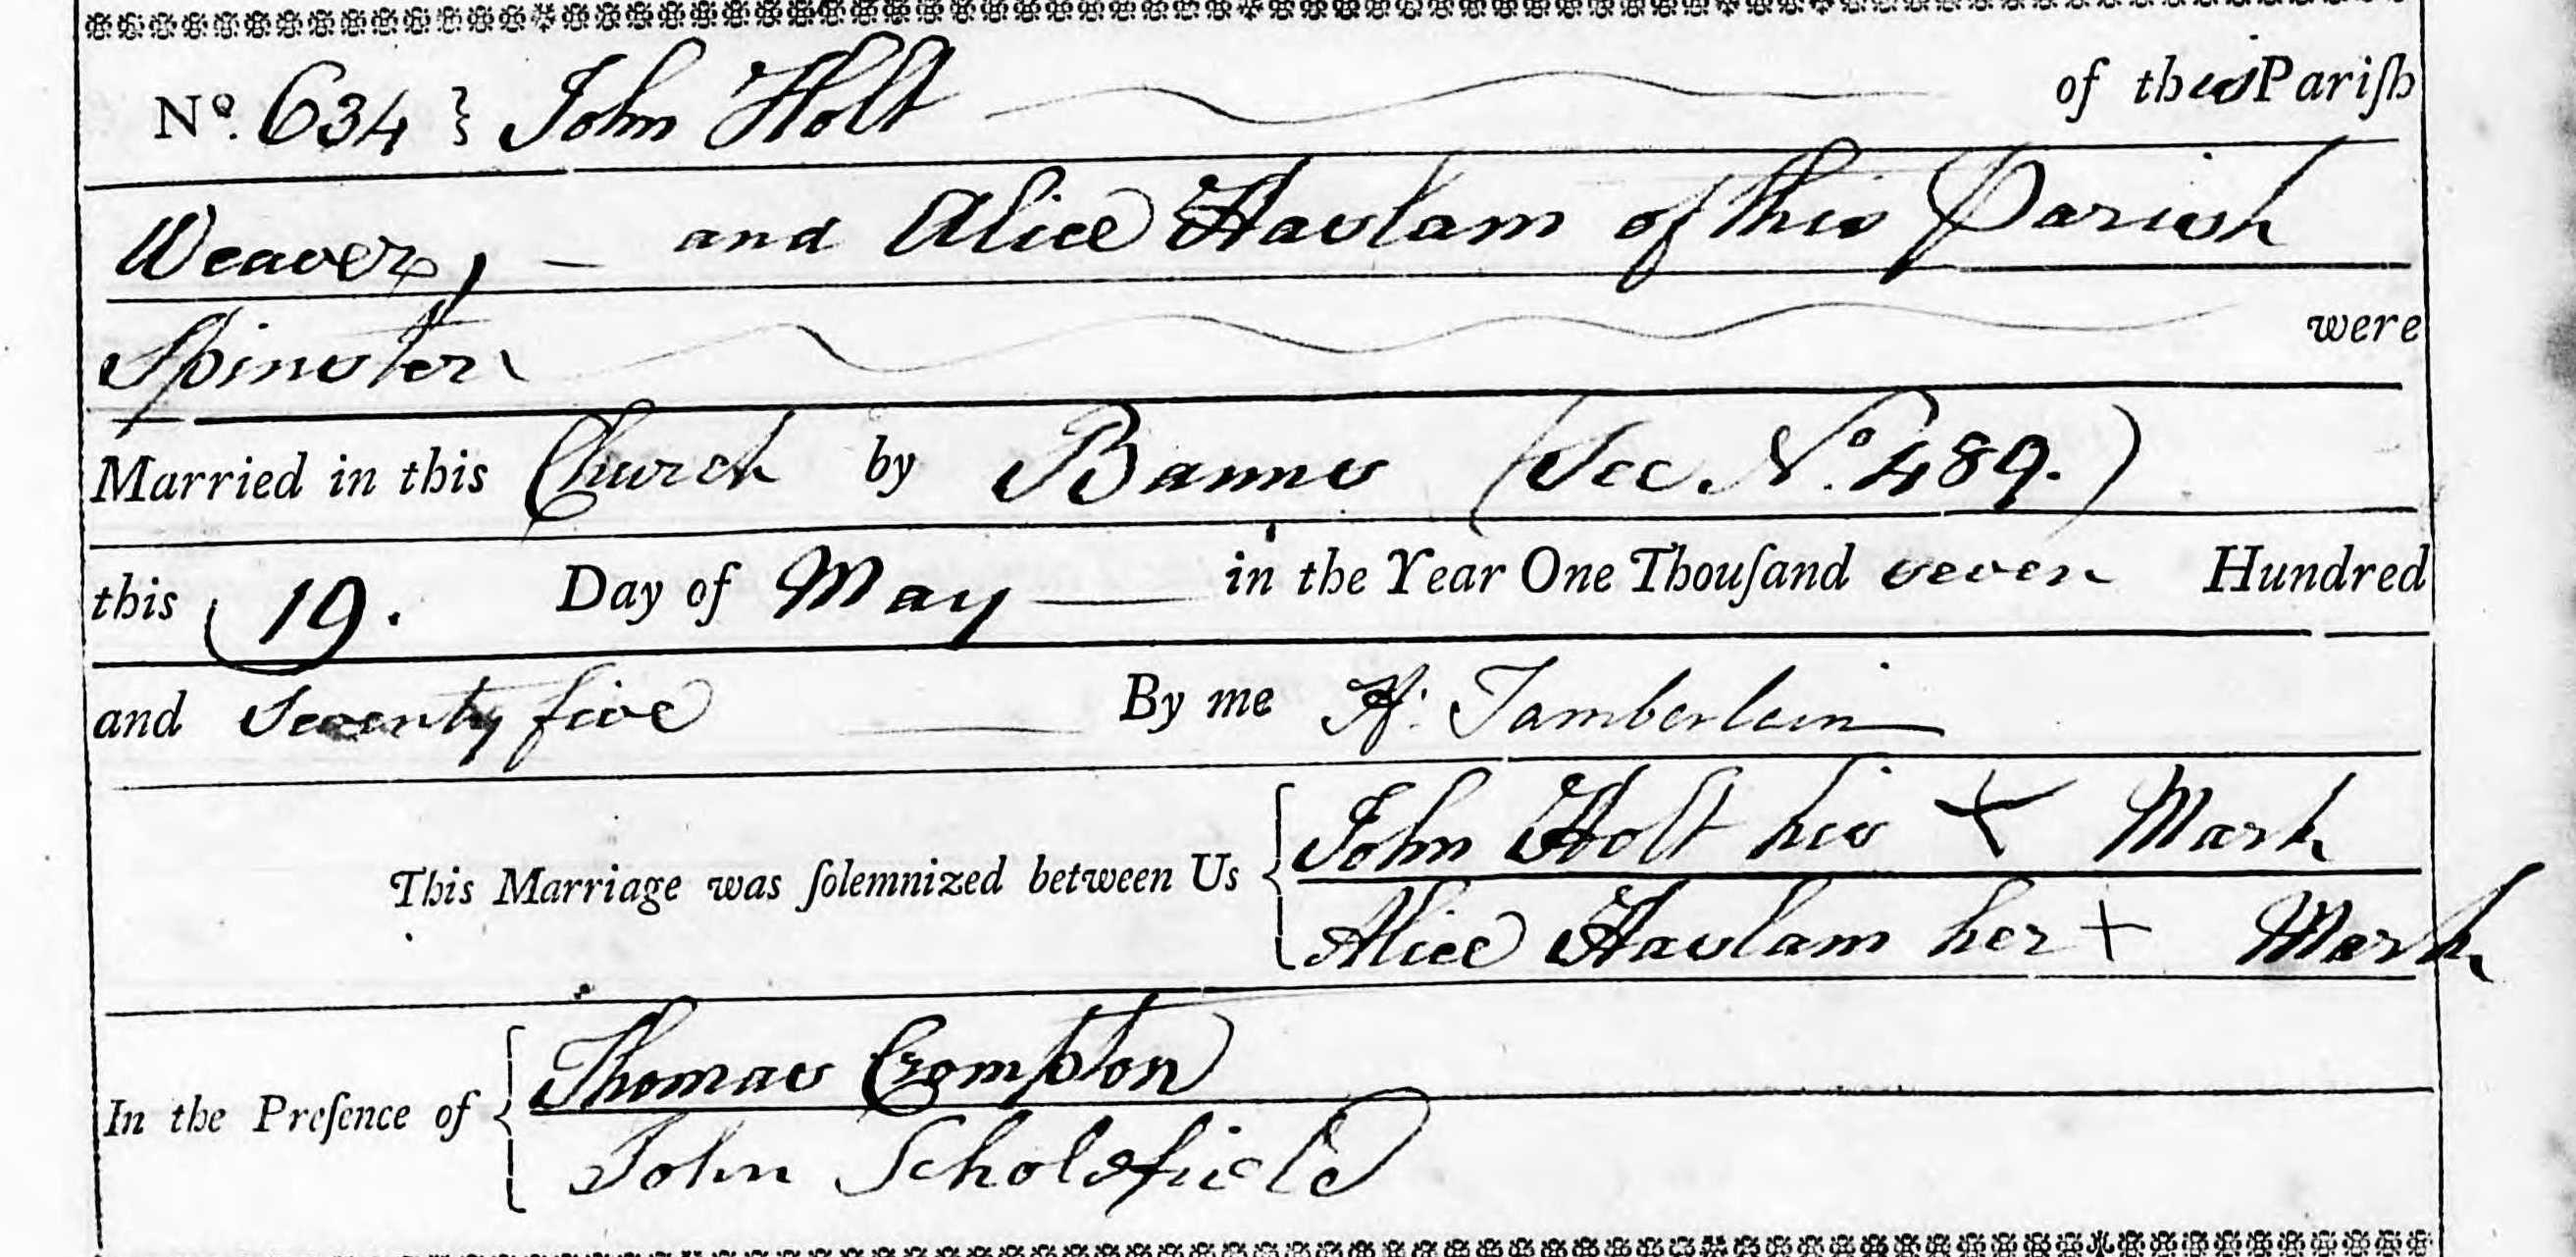 No. 634 } John Holt of this Parish
Weaver, and Alice Haslam of this Parish
Spinster were
Married in this Church by Banns (See No. 489.)
this 19. Day of May in the Year One Thouſand seven Hundred
and Seventy five By me H: Tamberlein
This Marriage was ſolemnized between Us { John Holt his + Mark
Alice Haslam her + Mark
In the Preſence of { Thomas Crompton
John Scholefield